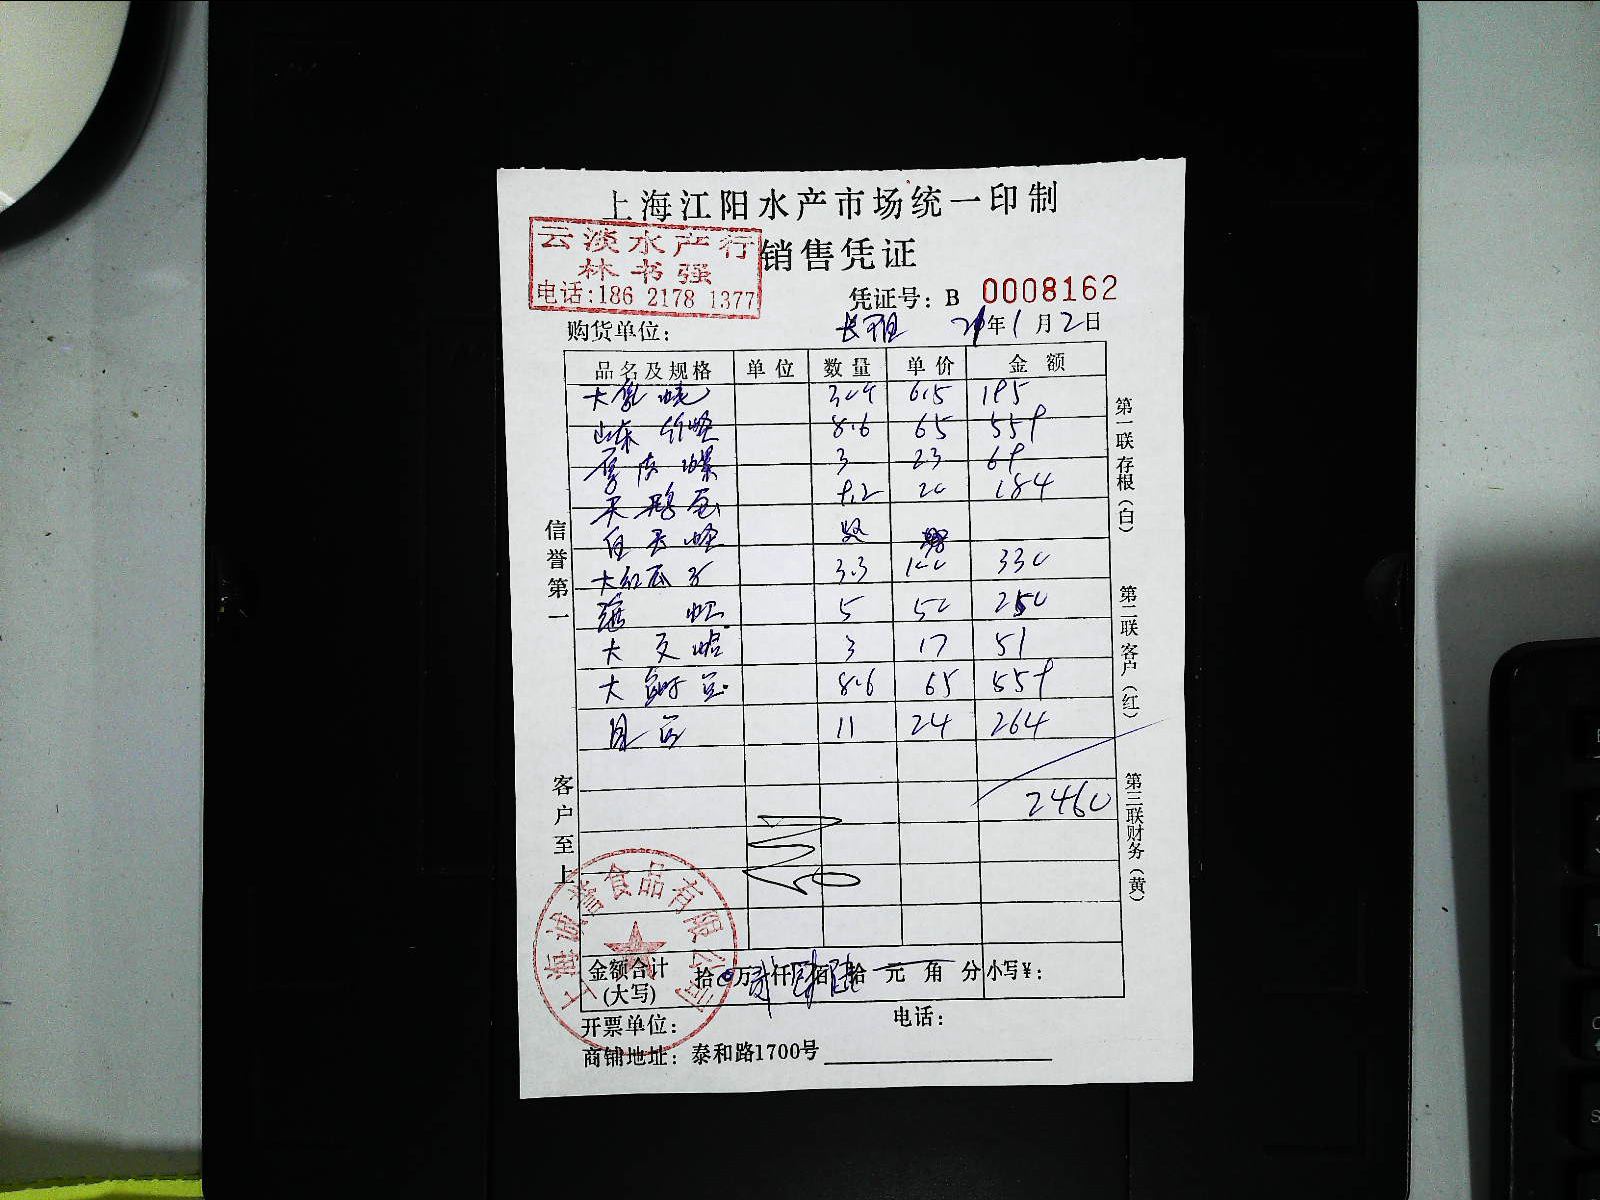 上海江阳水产市场统一印制
云淡水产行
林书强
电话:186 2178 1377
销售凭证
凭证号: B 0008162
购货单位: 21年1月2日
品名及规格 单位 数量 单价 金额
大 195
山东竹蛏 8.6 65 559
3 23 69
9.2 20 184
大红瓜子 3.3 100 330
5 50 250
大文蛤 3 17 51
大 8.6 65 559
11 24 264
2460
信誉第一
客户至上
第一联存根(白)
第二联客户(红)
第三联财务(黄)
上海诚誉食品有限公司
金额合计 拾 万 仟 佰 拾 元 角 分 小写¥:
(大写)
开票单位: 电话:
商铺地址: 泰和路1700号